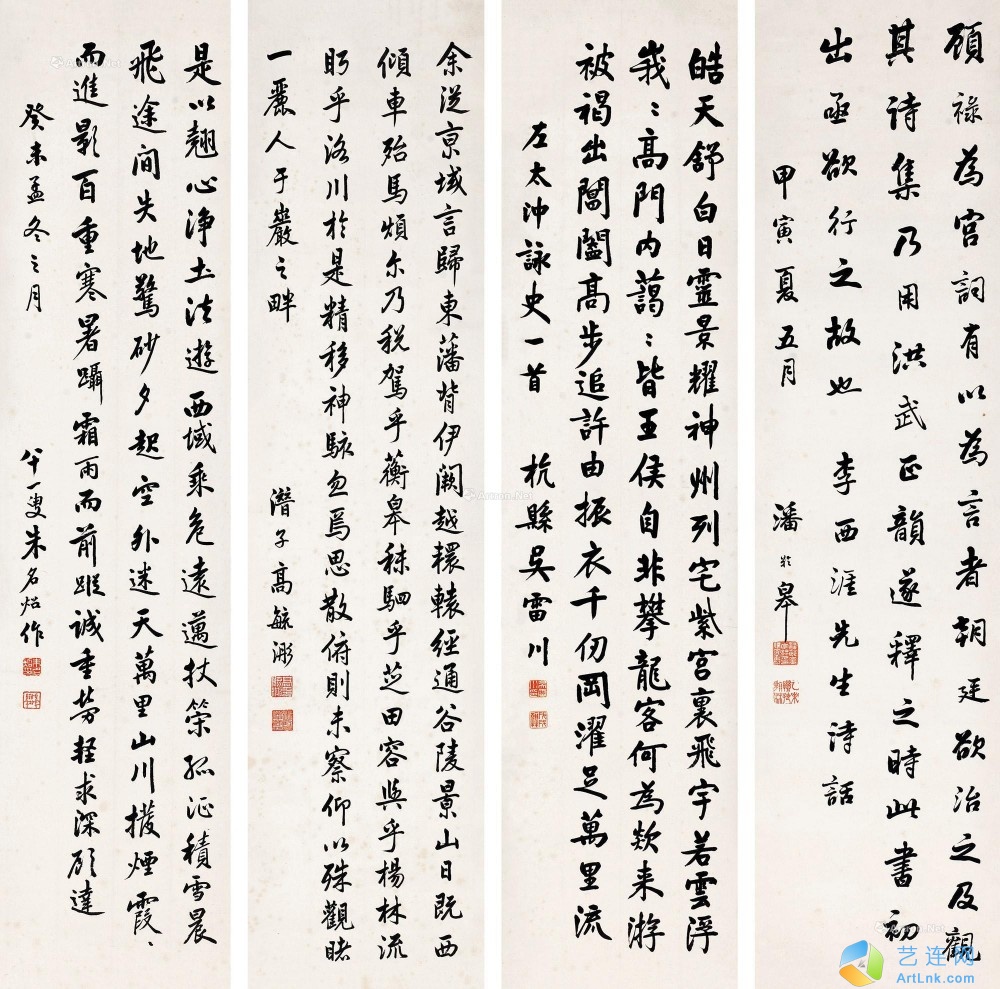 顾禄为宫詞有以為言者朝廷欲治之及觀
其诗集乃用洪武正韻遂釋之時此書初
出亟欲行之故也李西涯先生诗話
甲寅夏五月 潘齡皋
皓天舒白日靈景耀神州列宅紫宮裏飛宇若雲浮
峩〻高門内藹〻皆王侯自非攀龍客何為欻来游
被褐出閶闔高步追許由振衣千仞岡濯足萬里流
左太沖詠史一首 杭縣吳雷川
余從京域言歸東藩背伊闕越轘轅經通谷陵景山日既西
傾車殆馬煩尔乃税駕乎蘅皋秣駟乎芝田容與乎楊林流
眄乎洛川於是精移神駭忽焉思散俯則未察仰以殊觀睹
一麗人于巖之畔
潛子高毓浵
是以翹心浄土法遊西域乘危遠邁杖策孤征積雪晨
飛途间失地驚砂夕起空外迷天萬里山川撥煙霞〻
而進影百重寒暑躡霜雨而前蹤誠重勞軽求深願達
癸未孟冬之月 八十一叟朱名炤作
艺连网
ArtLnk.com